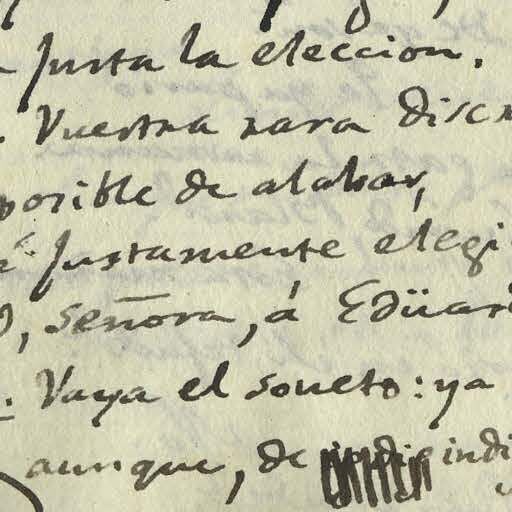 Justa la eleccion.
Vuestra rara disc
posible de alabar,
Justamente elegi
señora, á Edüar
Vaya el soneto: ya
aunque, de indi